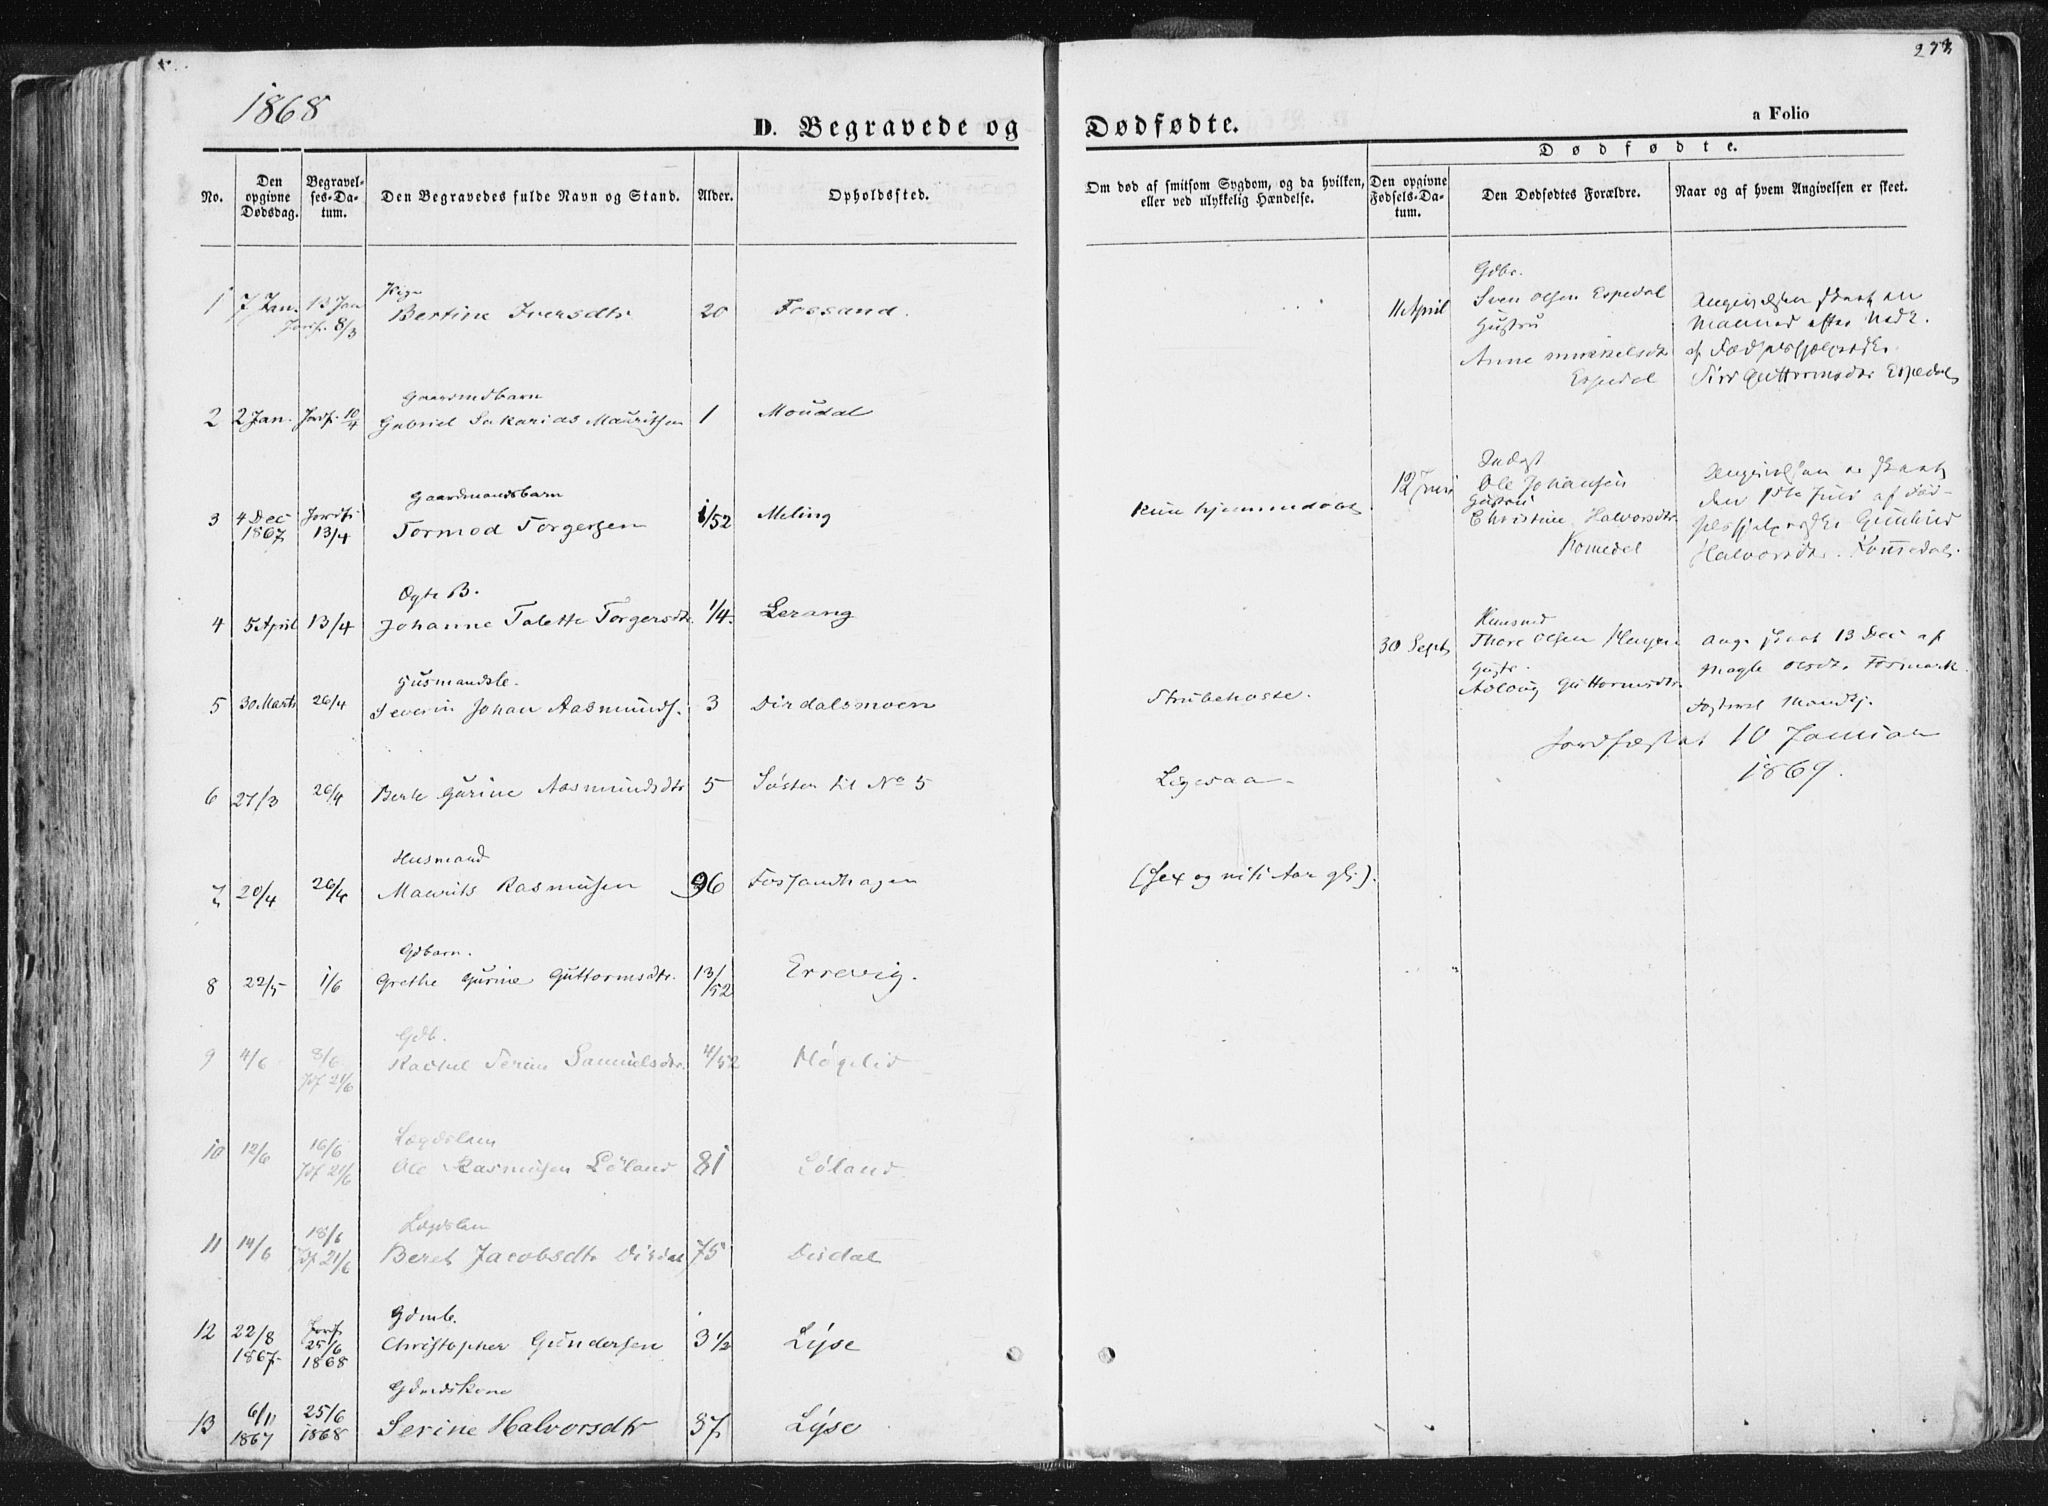 1868
D. Begravede og
No.
Den opgivne Dødsdag.
Begravelses-Datum.
Den Begravedes fulde Navn og Stand.
Alder.
Opholdssted.
1 7 Jan. 13 Jan Jordf. 8/3 Pige
Bertine Iversdtr 20 Fossand.
Gaardmdbarn
2 2 Jan. Jordf. 10/4 Gabriel Sakarias Mauritsen 1 Moudal
Gaardmandsbarn
3 4 Dec 1867 Jordf. 13/4 Tormod Torgersen 1/52 Meling
Ægte B.
4 5 April 13/4 Johanne Talette Torgersdtr 1/4. Lerang
Husmandsb.
5 30 Marts 26/4 Severin Johan Aasmunds. 3 Dirdalsmoen
6 27/3 26/4 Berte Gurine Aasmundsdtr 5 Søster til No 5
Husmand
7 20/4 26/4 Maurits Rasmusen 96 Fossandhagen
Gdbarn.
8 22/5 1/6 Grethe Gurine Guttormsdtr. 13/52 Errevig.
Gdb.
9 4/6 8/6 Jdf 21/6 Rachel Serine Samuelsdtr. 4/52 Høgelid
Lægdslem
10 12/6 16/6 Jdf 21/6 Ole Rasmusen Løland 81 Løland
Lægdslem
11 14/6 18/6 Jdf 21/6 Beret Jacobsdtr Dirdal 75 Dirdal
Gdmb.
12 22/8 1867 Jordf. 25/6 1868 Christopher Gundersen 3 1/2 Lyse
Gdmdskone
13 6/11 1867 25/6 1868 Serine Halvorsdtr 37 Lyse
273
Dødfødte.
a Folio
Om død af smitsom Sygdom, og da hvilken,
eller ved ulykkelig Hændelse.
Dødfødte.
Den opgivne Fødsels-Datum.
Den Dødfødtes Forældre.
Naar og af hvem Angivelsen er skeet.
Kun hjemmedøbt
Strubehoste.
Ligesaa
(sex og niti Aar gl.).
11 April
Gdbr.
Sven Olsen Espedal
Hustru
Anne Mikkelsdtr
Espedal
Angivelsen skeet en
Maaned efter Neds.
af Fødselshjælpersken
Siri Guttormsdtr Espedal
12 Juni
Indest
Ole Johansen
Hustru
Christine Halvorsdtr
Romedal
Angivelsen er skeet
den 1ste Juli af Fød-
selshjelpersken Gunhild
Halvorsdtr.
30 Sept
Husmd
Thore Olsen
Hustr.
Aslaug Guttormsdtr.
Ang. skeet 13 Dec af
Magle Olsdtr. Fosmark
Fosteret Mandkj.
Jordfæstet 10 Januar
1869.